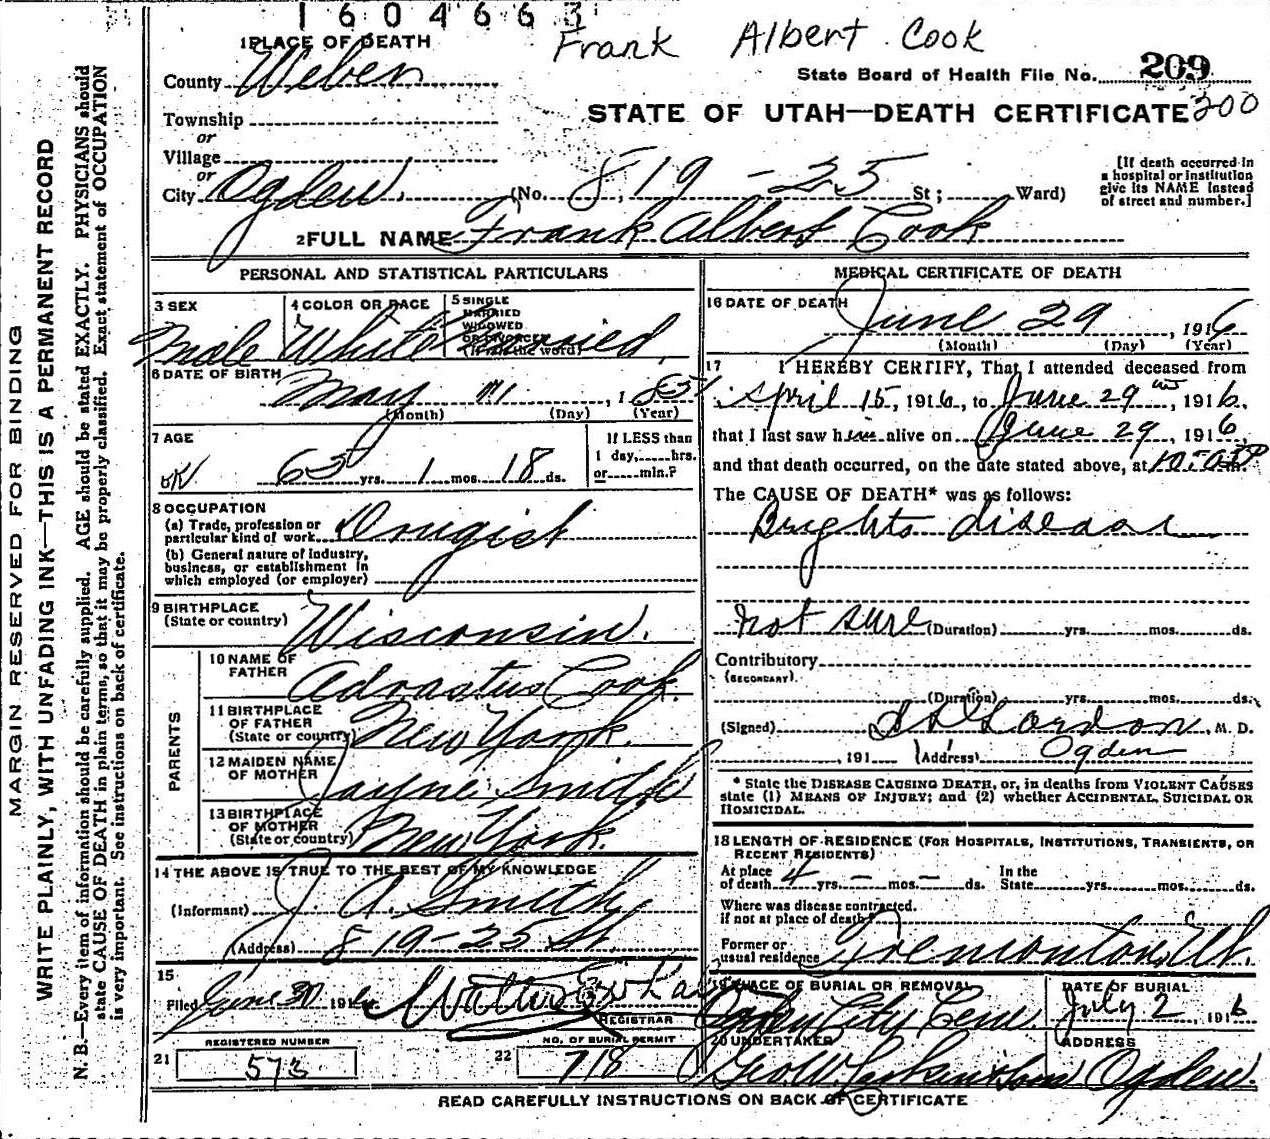 1604663
Frank Albert Cook
1 PLACE OF DEATH
County Weber
State Board of Health File No. 209
STATE OF UTAH—DEATH CERTIFICATE 300
Township
or
Village
or
City Ogden (No. 819 - 25 St; Ward)
[If death occurred in a hospital or institution give its NAME instead of street and number.]
2 FULL NAME Frank Albert Cook
PERSONAL AND STATISTICAL PARTICULARS
3 SEX Male
4 COLOR OR RACE White
5 SINGLE MARRIED WIDOWED OR DIVORCED (Write the word) Married
6 DATE OF BIRTH May 11, 1853
(Month) (Day) (Year)
7 AGE 63 yrs. 1 mos. 18 ds.
If LESS than 1 day, hrs. or min.?
OK
8 OCCUPATION
(a) Trade, profession or particular kind of work Drugist
(b) General nature of industry, business, or establishment in which employed (or employer)
9 BIRTHPLACE (State or country) Wisconsin.
PARENTS
10 NAME OF FATHER Adrastus Cook
11 BIRTHPLACE OF FATHER (State or country) New York.
12 MAIDEN NAME OF MOTHER Jayne Smith
13 BIRTHPLACE OF MOTHER (State or country) New York.
14 THE ABOVE IS TRUE TO THE BEST OF MY KNOWLEDGE
(Informant) J. A. Smith
(Address) 819-25 St.
15
Filed June 30 191 Walter
REGISTRAR
REGISTERED NUMBER
21 573
NO. OF BURIAL PERMIT
22 718
MEDICAL CERTIFICATE OF DEATH
16 DATE OF DEATH June 29, 1916
(Month) (Day) (Year)
17 I HEREBY CERTIFY, That I attended deceased from
April 15, 1916, to June 29, 1916,
that I last saw him alive on June 29, 1916,
and that death occurred, on the date stated above, at
The CAUSE OF DEATH* was as follows:
Brights disease
not sure (Duration) yrs. mos. ds.
Contributory (SECONDARY)
(Duration) yrs. mos. ds.
(Signed) Gordon, M. D.
, 191 (Address) Ogden
* State the DISEASE CAUSING DEATH, or, in deaths from VIOLENT CAUSES state (1) MEANS OF INJURY; and (2) whether ACCIDENTAL, SUICIDAL OR HOMICIDAL.
18 LENGTH OF RESIDENCE (FOR HOSPITALS, INSTITUTIONS, TRANSIENTS, OR RECENT RESIDENTS)
At place of death 4 yrs. – mos. – ds. In the State yrs. mos. ds.
Where was disease contracted, if not at place of death?
Former or usual residence Tremonton, Ut.
19 PLACE OF BURIAL OR REMOVAL Ogden City Cem.
DATE OF BURIAL July 2, 1916
20 UNDERTAKER Geo W.
ADDRESS Ogden.
READ CAREFULLY INSTRUCTIONS ON BACK OF CERTIFICATE
MARGIN RESERVED FOR BINDING
WRITE PLAINLY, WITH UNFADING INK—THIS IS A PERMANENT RECORD
N. B.—Every item of information should be carefully supplied. AGE should be stated EXACTLY. PHYSICIANS should
state CAUSE OF DEATH in plain terms, so that it may be properly classified. Exact statement of OCCUPATION
is very important. See instructions on back of certificate.